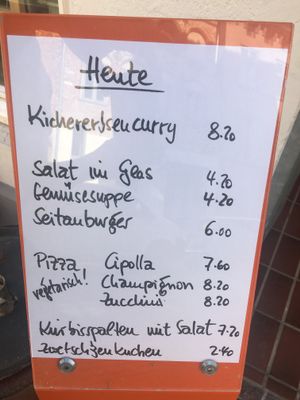 Heute
Kichererbsencurry 8.20
Salat im Glas 4.20
Gemüsesuppe 4.20
Seitanburger 6.00
Pizza Cipolla 7.60
vegetarisch! Champignon 8.20
Zucchini 8.20
Kürbisspalten mit Salat 7.20
Zwetschgenkuchen 2.40